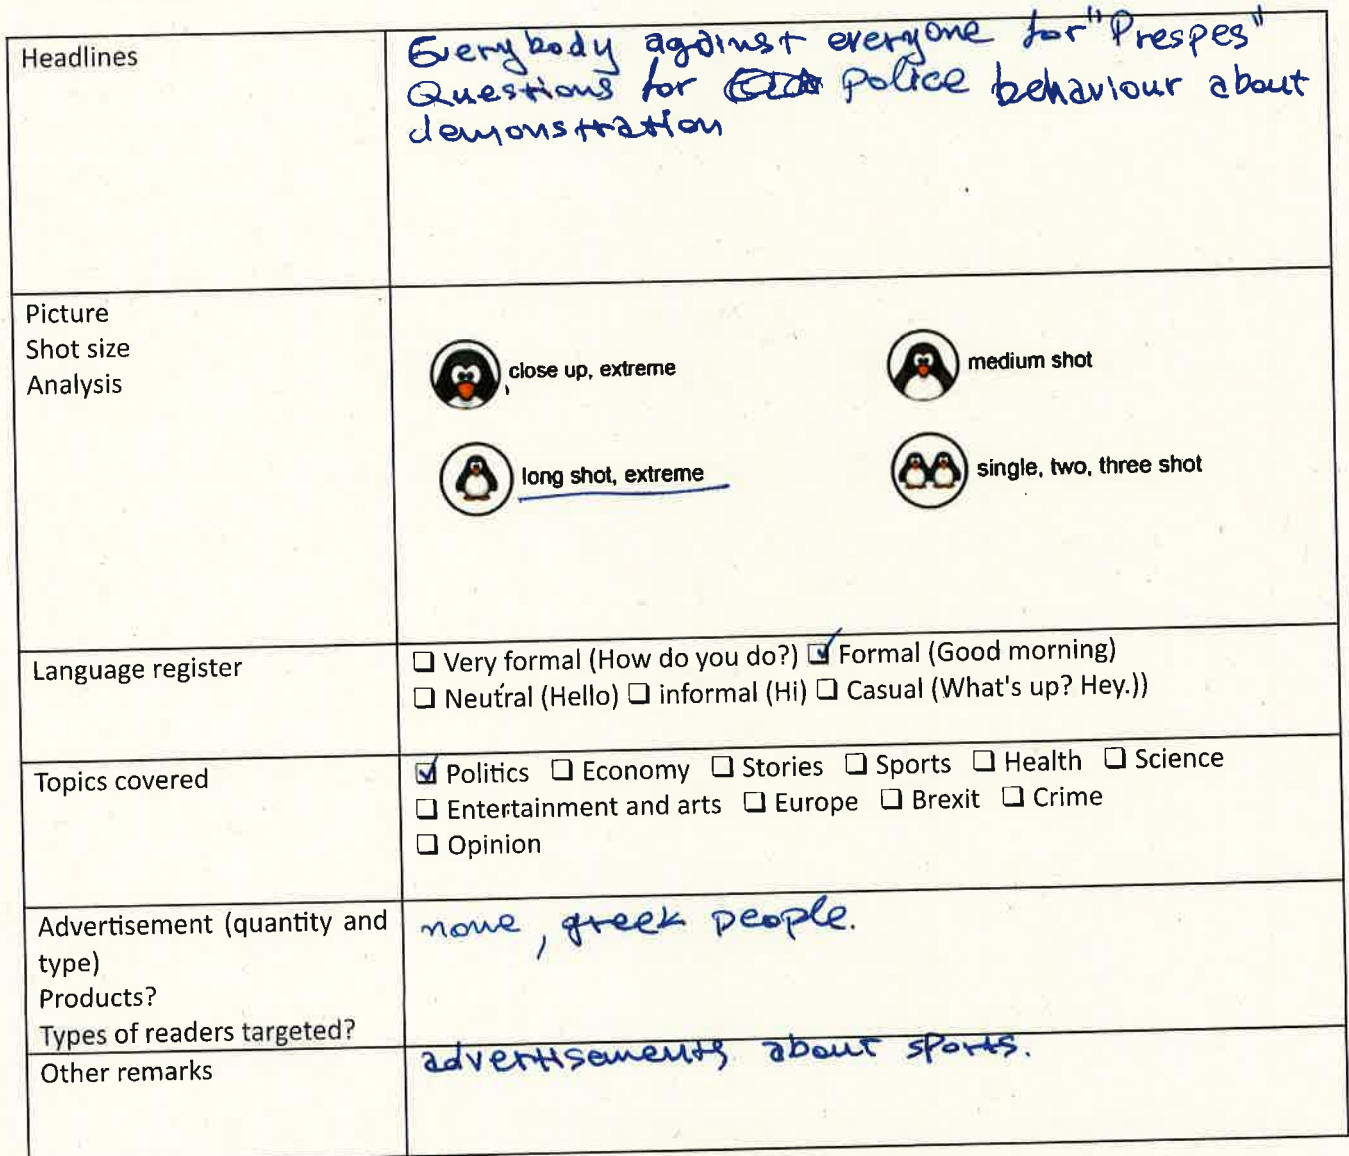 Headlines
Everybody against everyone for "Prespes"
Questions for police behaviour about
demonstration
Picture
Shot size
Analysis
close up, extreme
medium shot
long shot, extreme
single, two, three shot
Language register
☐ Very formal (How do you do?) ☑ Formal (Good morning)
☐ Neutral (Hello) ☐ informal (Hi) ☐ Casual (What's up? Hey.))
Topics covered
☑ Politics ☐ Economy ☐ Stories ☐ Sports ☐ Health ☐ Science
☐ Entertainment and arts ☐ Europe ☐ Brexit ☐ Crime
☐ Opinion
Advertisement (quantity and
type)
Products?
Types of readers targeted?
none, greek people.
Other remarks
advertisements about sports.